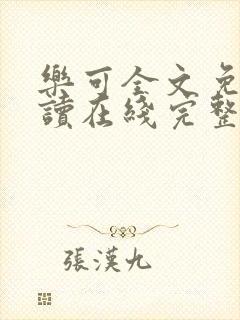 樂可全文免
讀在綫完整
張漢九